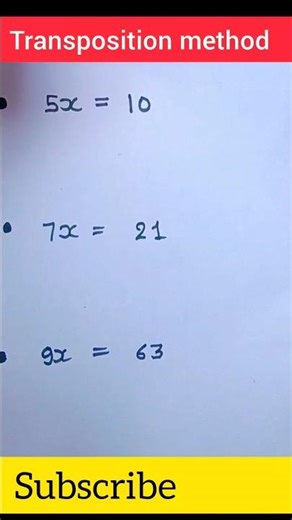 Transposition method
5x = 10
7x = 21
9x = 63
Subscribe